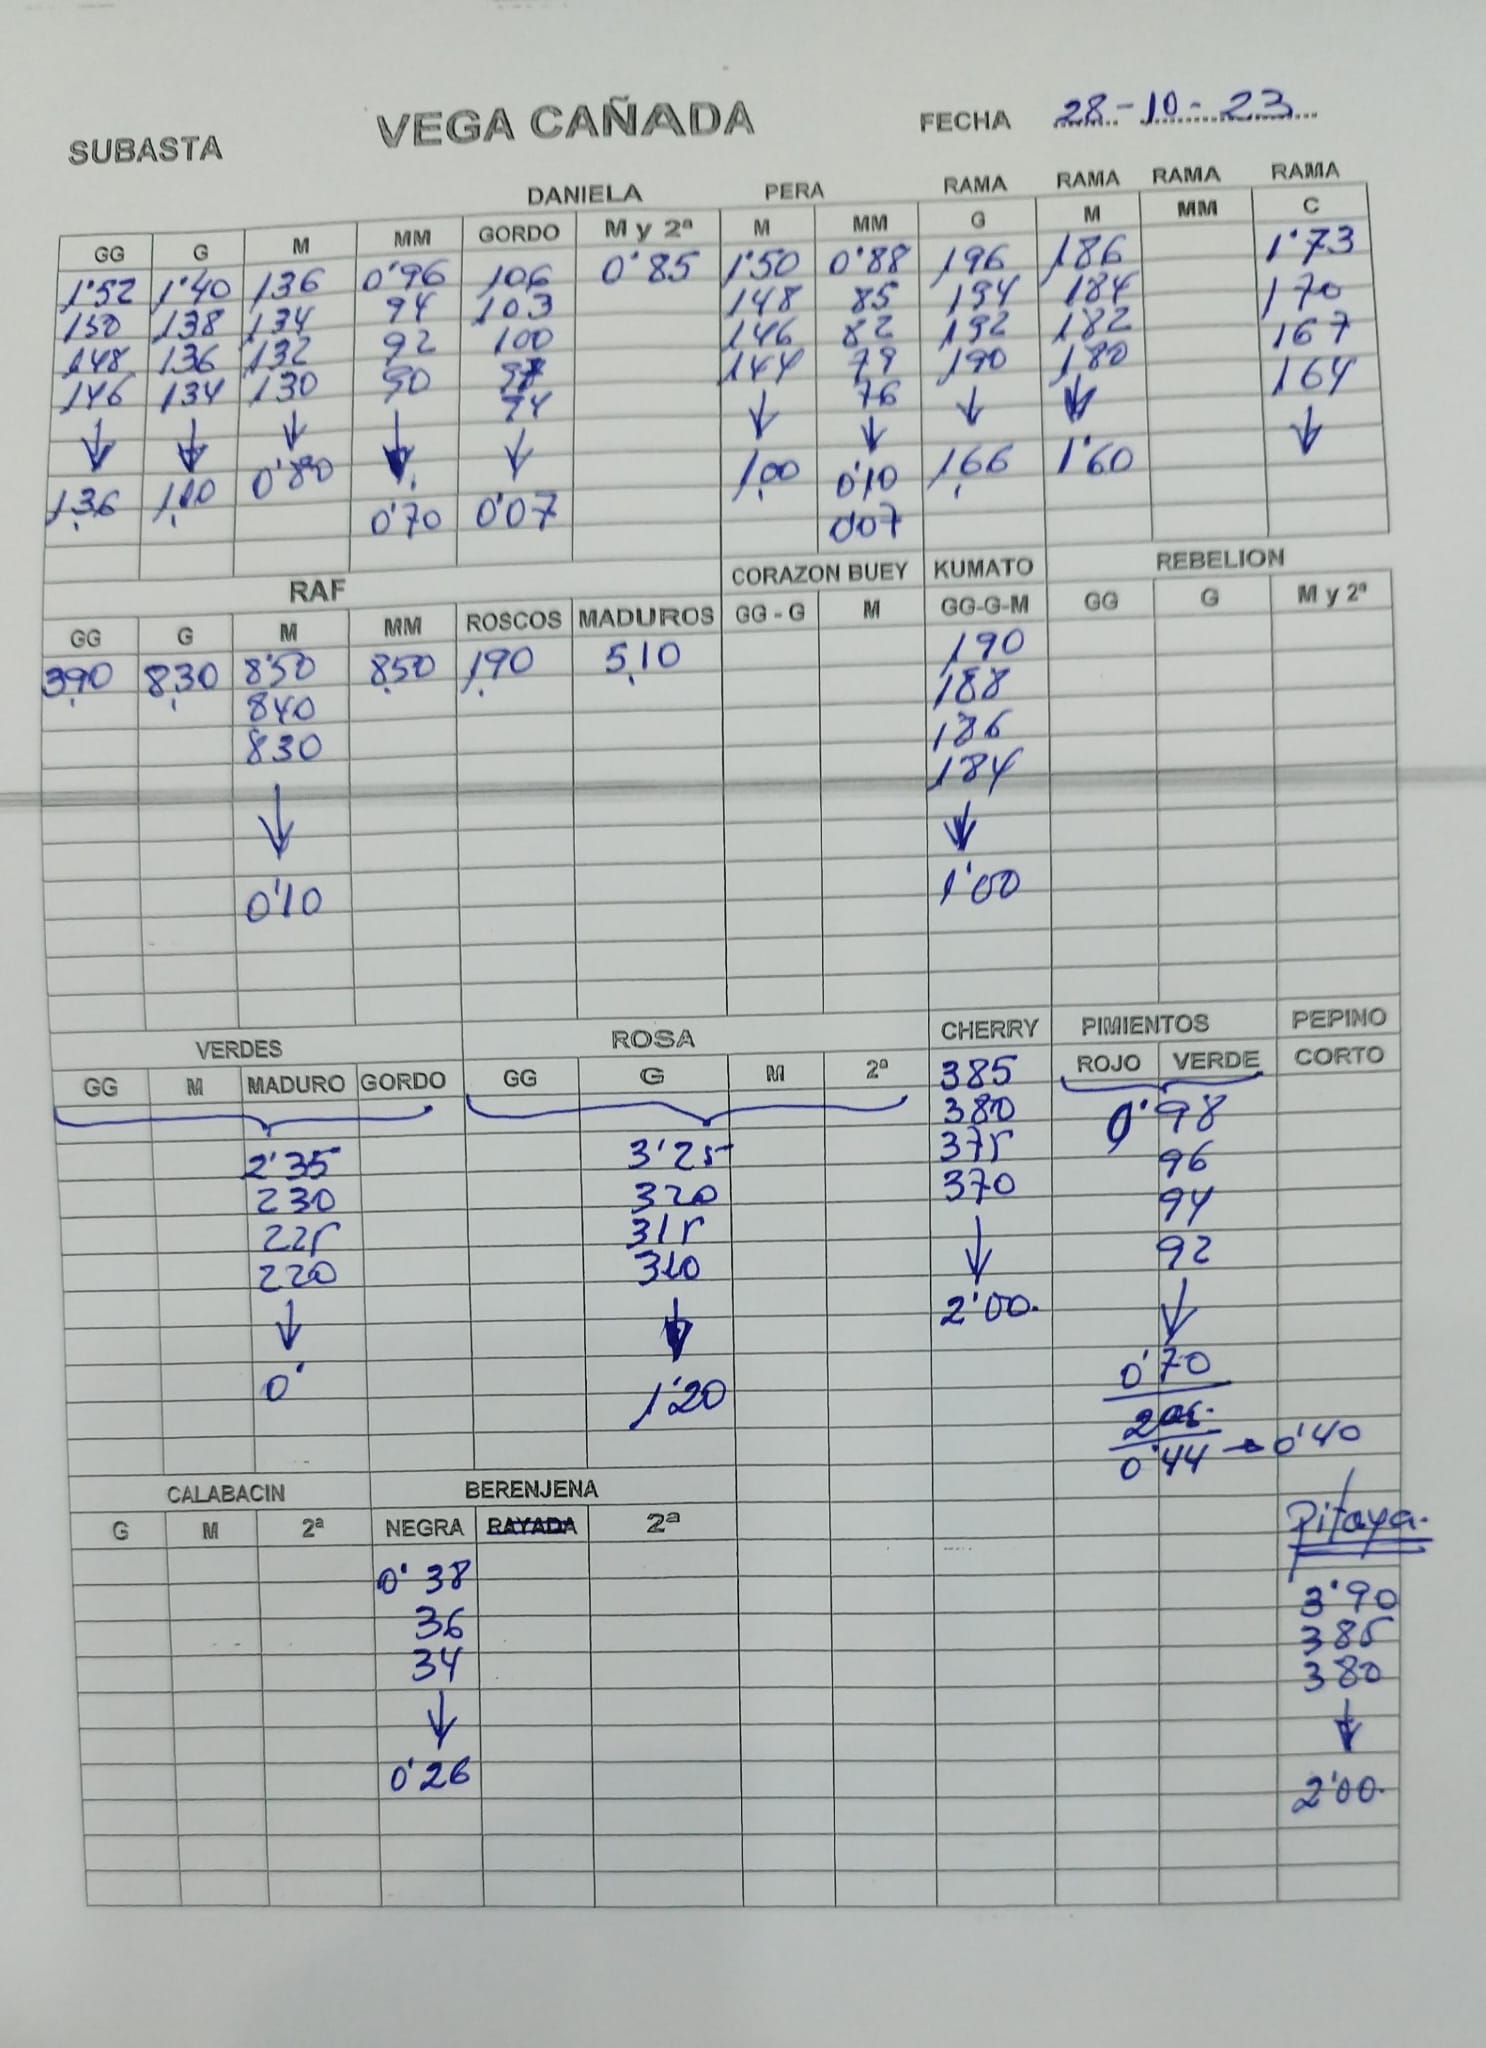 SUBASTA VEGA CAÑADA FECHA 28-10-23
DANIELA PERA RAMA RAMA RAMA RAMA
GG G M MM GORDO M y 2ª M MM G M MM C
1'52 1'40 136 0'96 106 0'85 1'50 0'88 196 186 1'73
150 138 134 94 103 148 85 194 184 170
148 136 132 92 100 146 82 192 182 167
146 134 130 90 97 144 79 190 180 164
94 76
0'80 1,00 0'10 1,66 1'60
1,36 1,00 0'70 0'07 0'07
RAF CORAZON BUEY KUMATO REBELION
GG G M MM ROSCOS MADUROS GG - G M GG-G-M GG G M y 2ª
3,90 8,30 8'50 8,50 1,90 5,10 190
840 188
830 186
184
0'10 1'00
VERDES ROSA CHERRY PIMIENTOS PEPINO
GG M MADURO GORDO GG G M 2ª 385 ROJO VERDE CORTO
380 0'98
2'35 3'25 375 96
230 320 370 94
225 315 92
220 310
2'00.
0' 1'20 0'70
0'44 → 0'40
CALABACIN BERENJENA
G M 2ª NEGRA RAYADA 2ª Pitaya.
0'38 3'90
36 385
34 380
0'26 2'00.